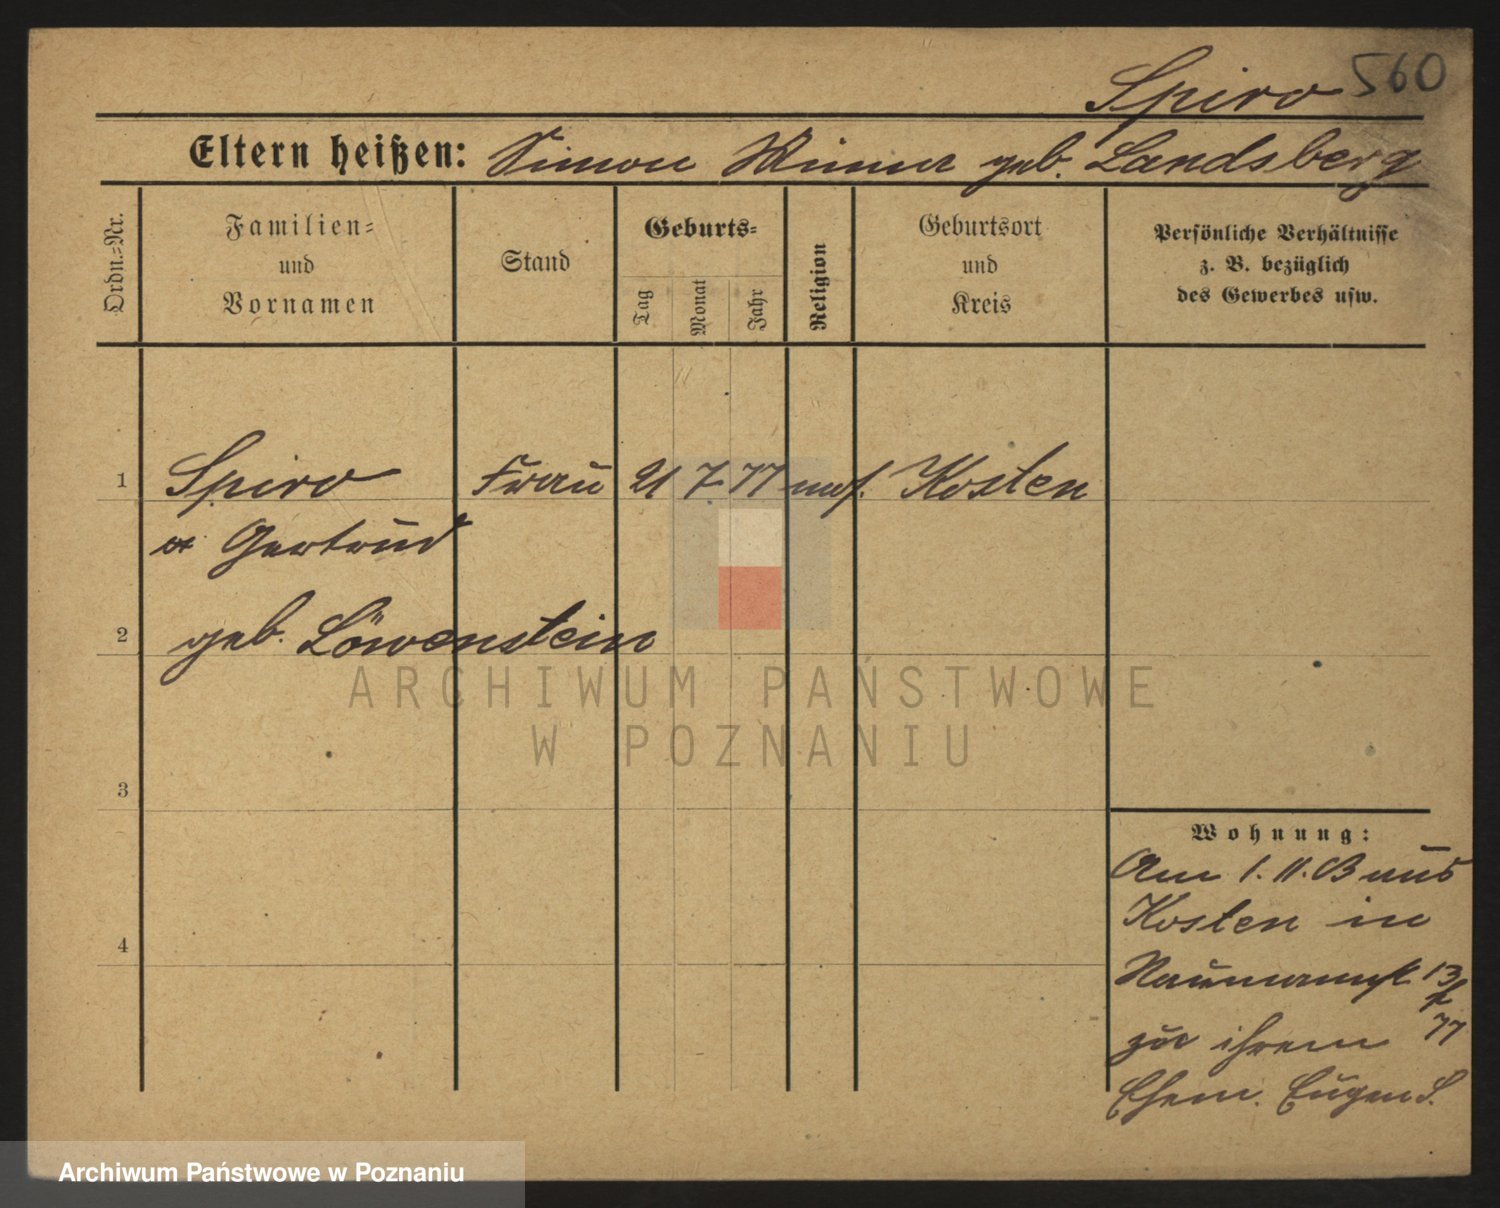 Spiro 560
Eltern heißen: Simon Minna geb. Landsberg
Ordn.=Nr.
Familien=
und
Vornamen
Stand
Geburts=
Tag
Monat
Jahr
Religion
Geburtsort
und
Kreis
Persönliche Verhältnisse
z. B. bezüglich
des Gewerbes usw.
1 Spiro Frau 21 7 77 mos. Kosten
Gertrud
2 geb. Löwenstein
3
4
Wohnung:
Am 1. 11. aus
Kosten in
Naumannstr 13
77
zu ihrem
Ehem. Eugen S.
ARCHIWUM PAŃSTWOWE
W POZNANIU
Archiwum Państwowe w Poznaniu